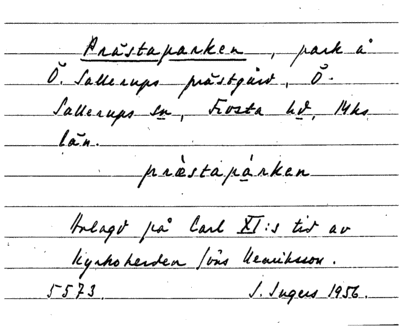 Prästaparken, park å
Ö. Sallerups prästgård, Ö.
Sallerups sn, Frosta hd, Mhs
län.
præstapárken
Anlagd på Carl XI:s tid av
Kyrkoherden Jöns Henriksson.
5573. I. Ingers 1956.